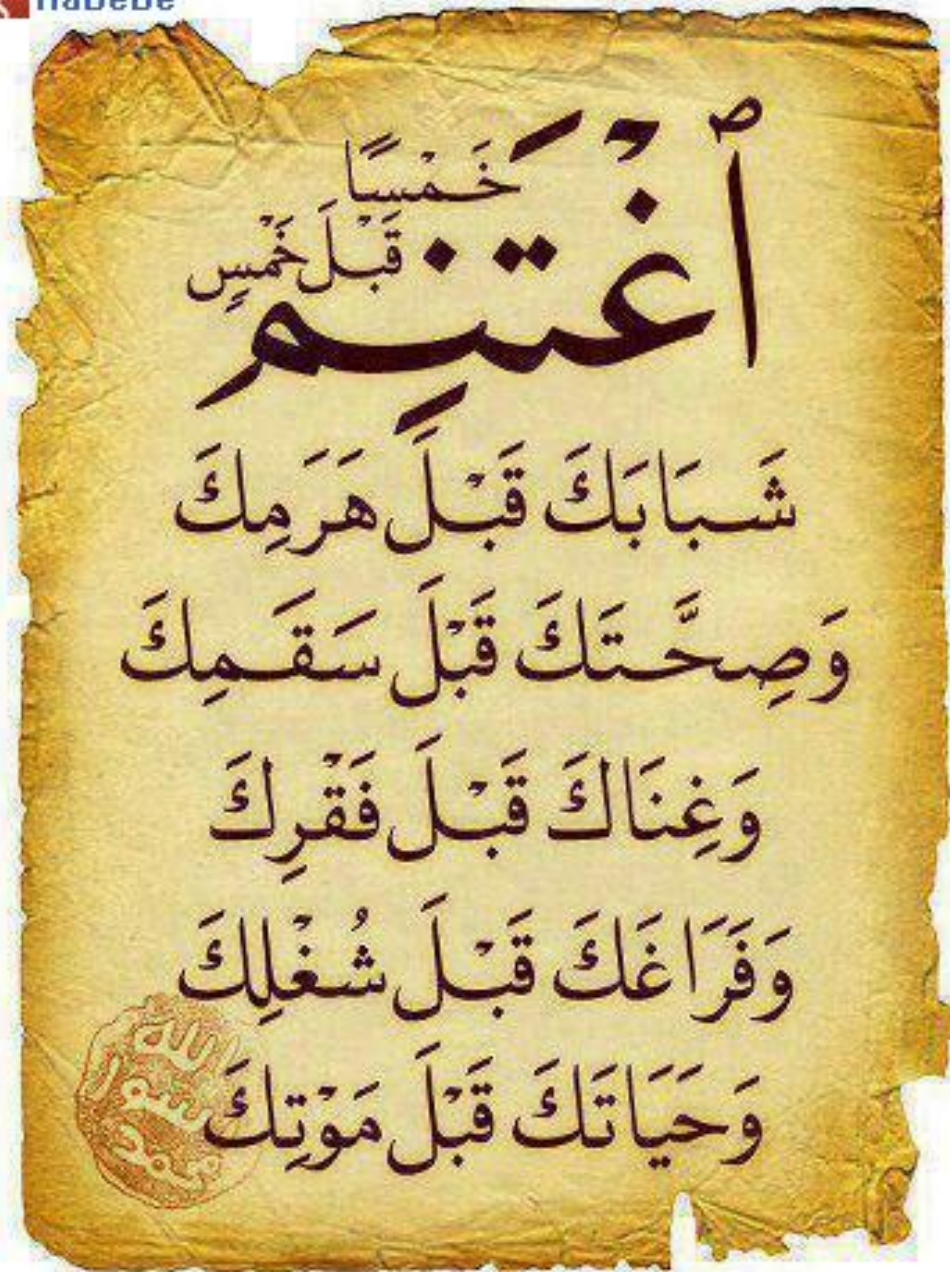 HaBeBe
ٱغْتَنِمْ
خَمْسًا
قَبْلَ خَمْسٍ
شَبَابَكَ قَبْلَ هَرَمِكَ
وَصِحَّتَكَ قَبْلَ سَقَمِكَ
وَغِنَاكَ قَبْلَ فَقْرِكَ
وَفَرَاغَكَ قَبْلَ شُغْلِكَ
وَحَيَاتَكَ قَبْلَ مَوْتِكَ
الله
رسول
محمد